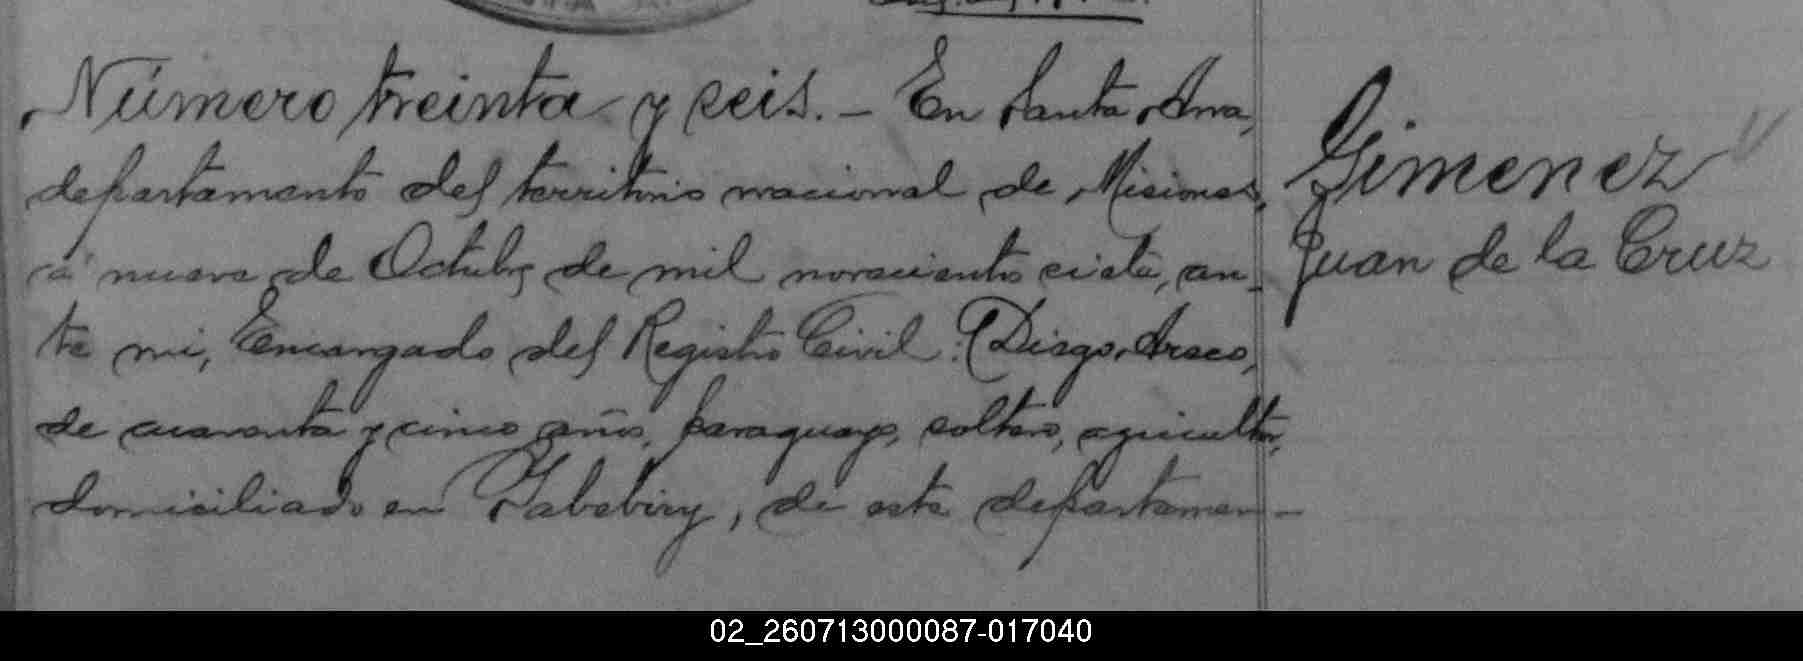 Número treinta y seis. – En Santa Ana,
departamento del territorio nacional de Misiones,
a nueve de Octubre de mil novecientos siete, an-
te mi, Encargado del Registro Civil: Diego Arseo,
de cuarenta y cinco años, paraguayo, soltero, agricultor,
domiciliado en Yabebiry, de este departamen-
Gimenez
Juan de la Cruz
02_260713000087-017040